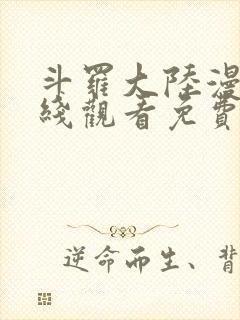 斗羅大陸漫
綫觀看免費
逆命而生、背